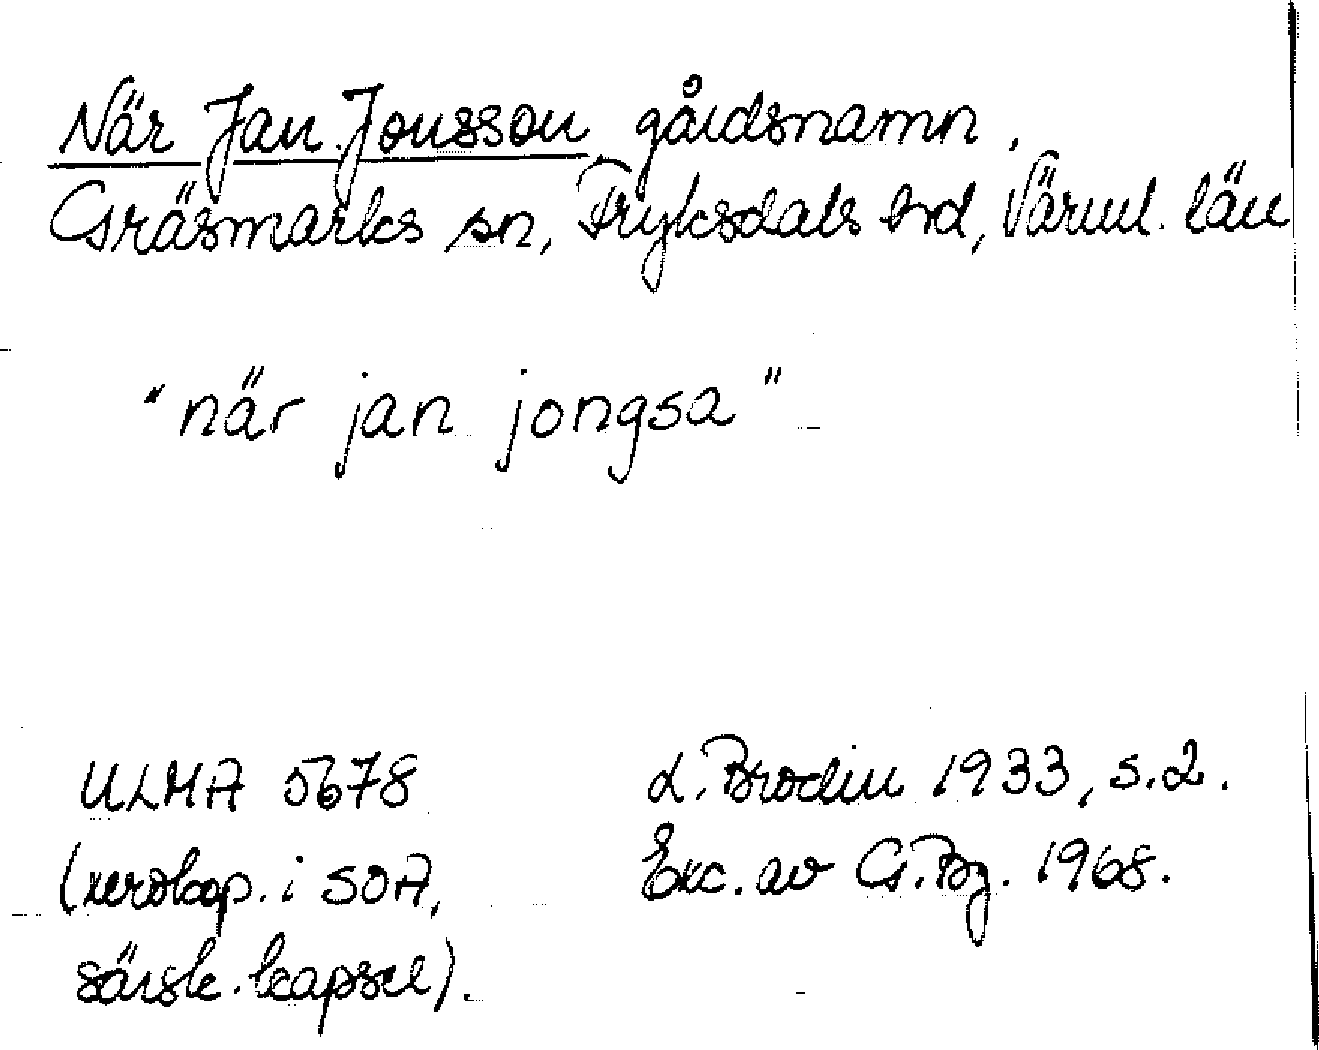 När Jan Jonsson, gårdsnamn.
Gräsmarks sn, Fryksdals hd, Värml. län
"när jan jongsa"
ULMA 5678
(xerokop. i SOA,
särsk. kapsel).
L. Brodin 1933, s. 2.
Exc. av G. Bg. 1968.